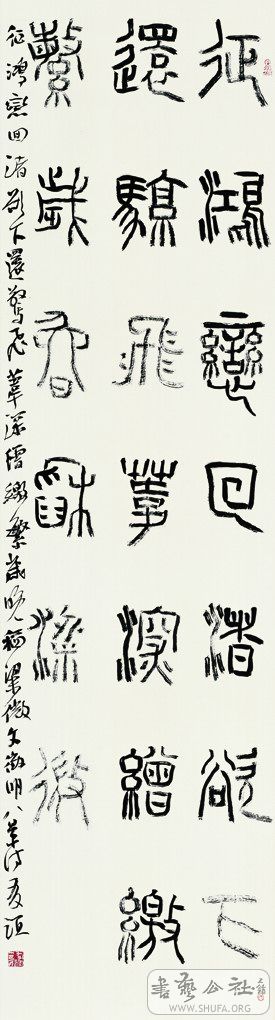 征鴻戀回渚欲下
還驚飛葦深繒繳
繁歲晚稻粱微
征鴻戀回渚欲下還驚飛葦深繒繳繁歲晚稻粱微文徵明
書藝公社
WWW.SHUFA.ORG